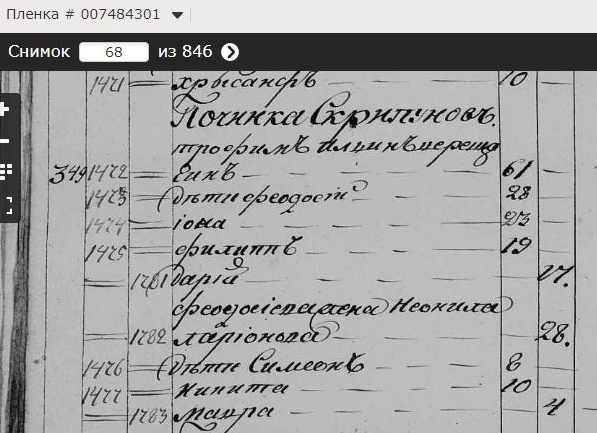 Пленка # 007484301
Снимок 68 из 846
1471 хрысанфъ 10
Починка Скрипуновъ.
трофимъ илиинъ черещо
349 1472 синъ 61
1473 дѣти феодосій 28
1474 іона 23
1475 филиппъ 19
1781 дарій 17.
феодосія жена Неонила
1782 ларіонова 28.
1476 дѣти Симеонъ 8
1477 никита 10
1783 мавра 4